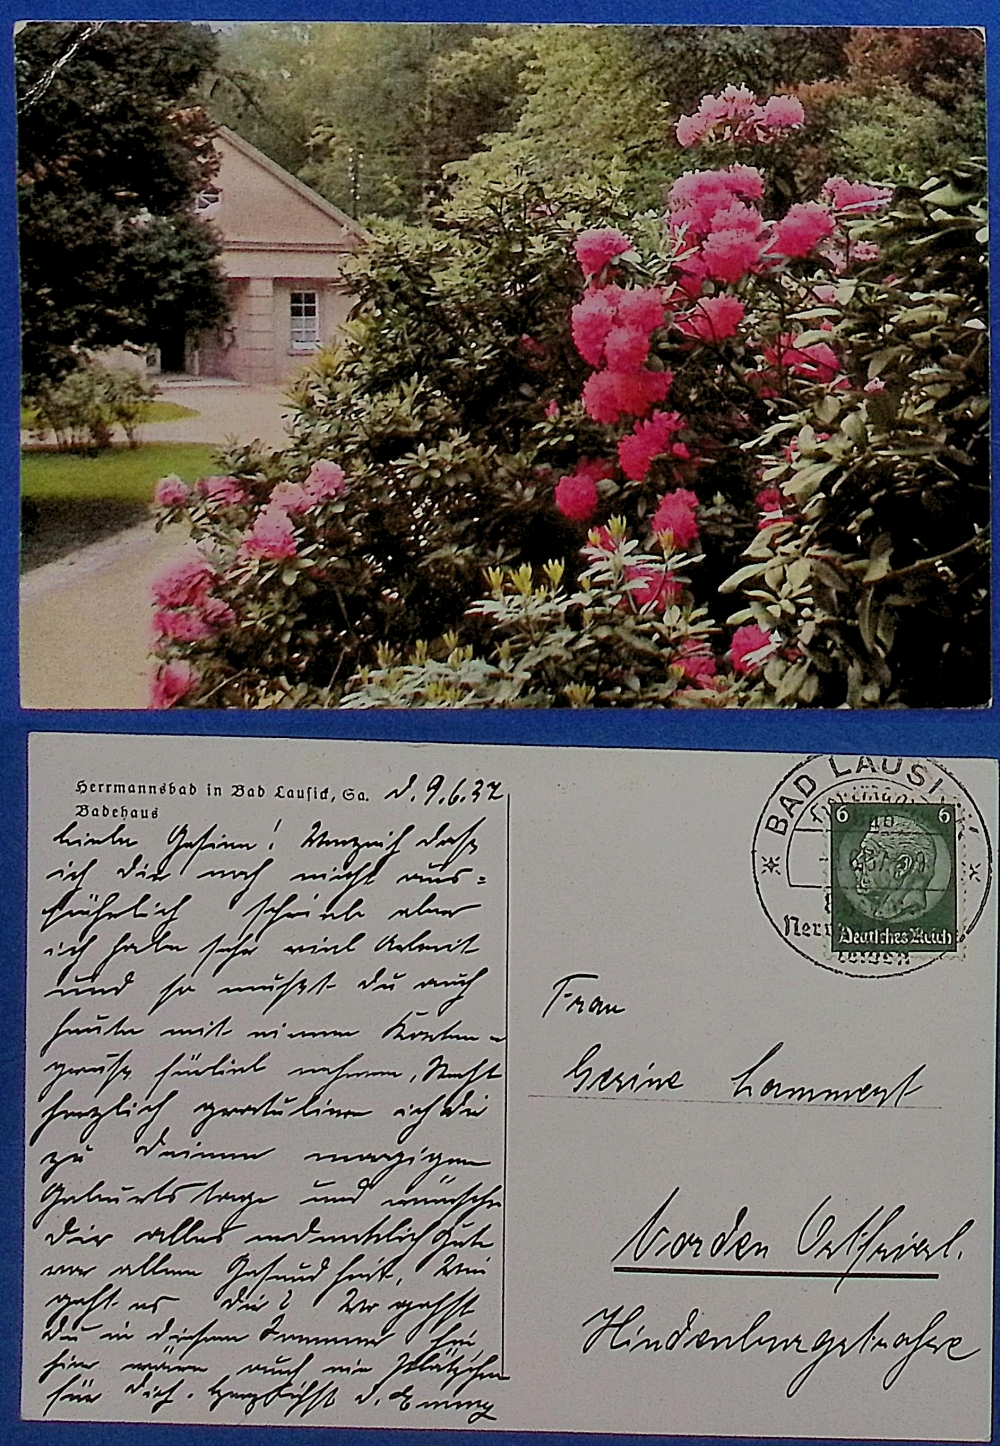 Herrmannsbad in Bad Lausick, Sa.
Badehaus
d. 9.6.37
Liebe Gesine! Verzeih dass
ich Dir noch nicht aus=
führlich schrieb aber
ich habe sehr viel Arbeit
und so musst du auch
heute mit einem Karten-
gruss fürlieb nehmen,
herzlich gratuliere ich Dir
zu Deinem morgigen
Geburtstage und wünsche
Dir alles erdenklich Gute
vor allem Gesundheit, Wie
geht es Dir? Wo gehst
Du in diesem Sommer hin,
hier wäre auch ein Plätzchen
für Dich. Herzlichst d. Emmy
BAD LAUSICK
6 6
Deutsches Reich
leiden
Frau
Gesine Lammert
Norden Ostfriesl.
Hindenburgstrasse